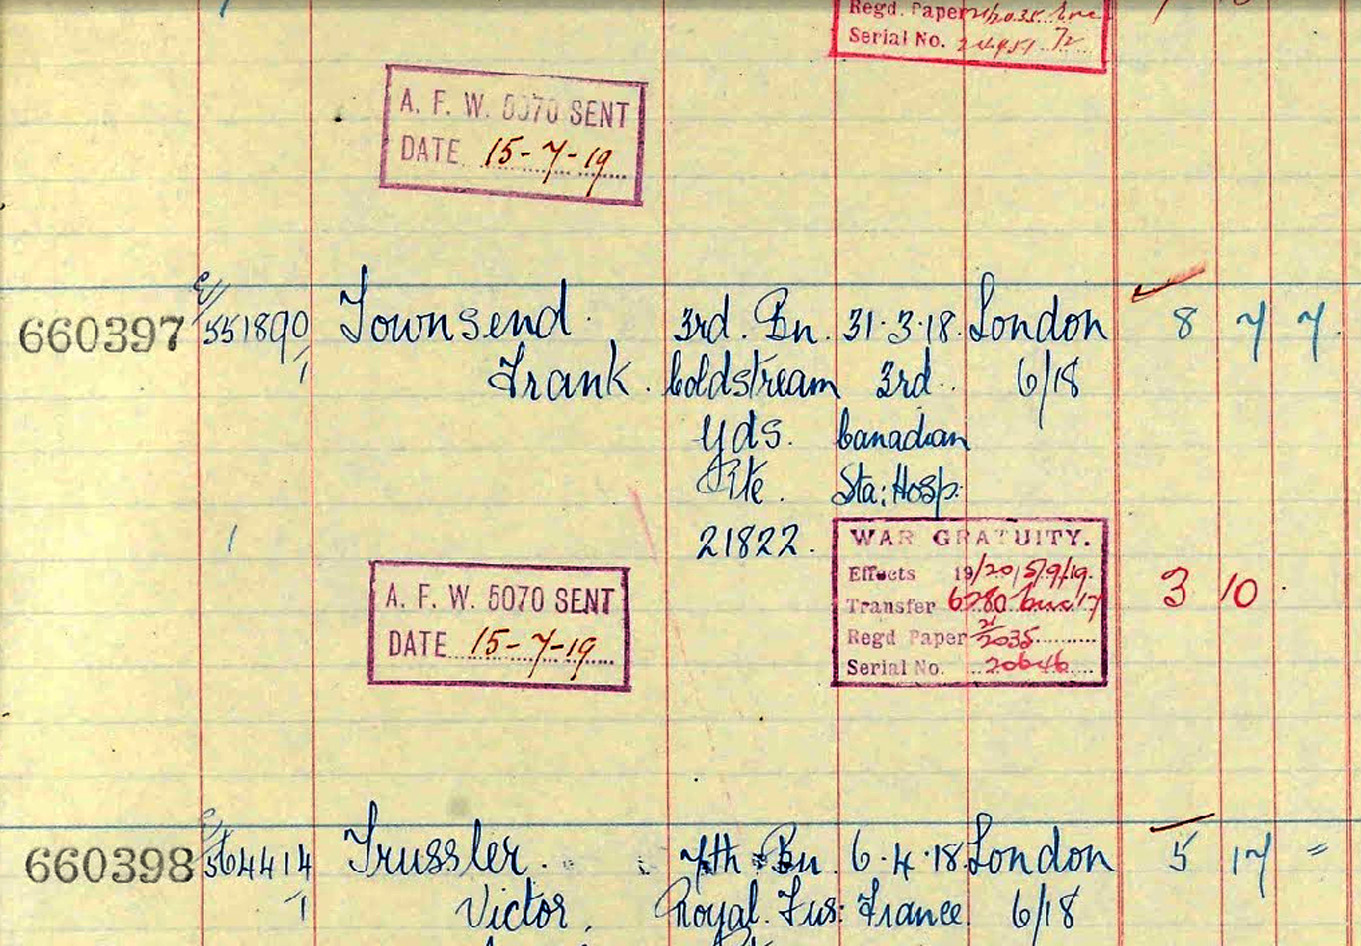 Regd. Paper
Serial No.
A. F. W. 5070 SENT
DATE 15-7-19
660397 E/ 551890/1 Townsend. 3rd. Bn. 31.3.18. London 8 7 7.
Frank. Coldstream 3rd. 6/18
Gds. Canadian
Pte. Sta: Hosp:
21822.
WAR GRATUITY.
Effects 19/20, 5/9/19. 3 10
Transfer
Regd Paper 21/2035
Serial No. 20646
A. F. W. 5070 SENT
DATE 15-7-19
660398 E/ 564414/1 Trussler. 7th Bn 6.4.18 London 5 17 =
Victor. Royal. Fus: France. 6/18